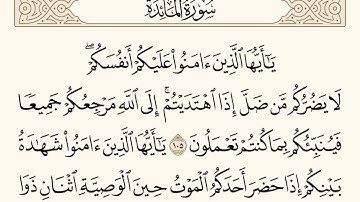 سُورَةُ المَائِدَةِ
يَٰٓأَيُّهَا ٱلَّذِينَ ءَامَنُواْ عَلَيۡكُمۡ أَنفُسَكُمۡۖ
لَا يَضُرُّكُم مَّن ضَلَّ إِذَا ٱهۡتَدَيۡتُمۡۚ إِلَى ٱللَّهِ مَرۡجِعُكُمۡ جَمِيعٗا
فَيُنَبِّئُكُم بِمَا كُنتُمۡ تَعۡمَلُونَ ١٠٥ يَٰٓأَيُّهَا ٱلَّذِينَ ءَامَنُواْ شَهَٰدَةُ
بَيۡنِكُمۡ إِذَا حَضَرَ أَحَدَكُمُ ٱلۡمَوۡتُ حِينَ ٱلۡوَصِيَّةِ ٱثۡنَانِ ذَوَا